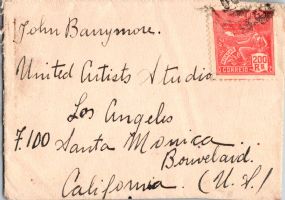 John Barrymore.
United Artists Studio
Los Angeles
7100 Santa Monica
Bouvelard.
California. (U.S.)
200
RS
CORREIO